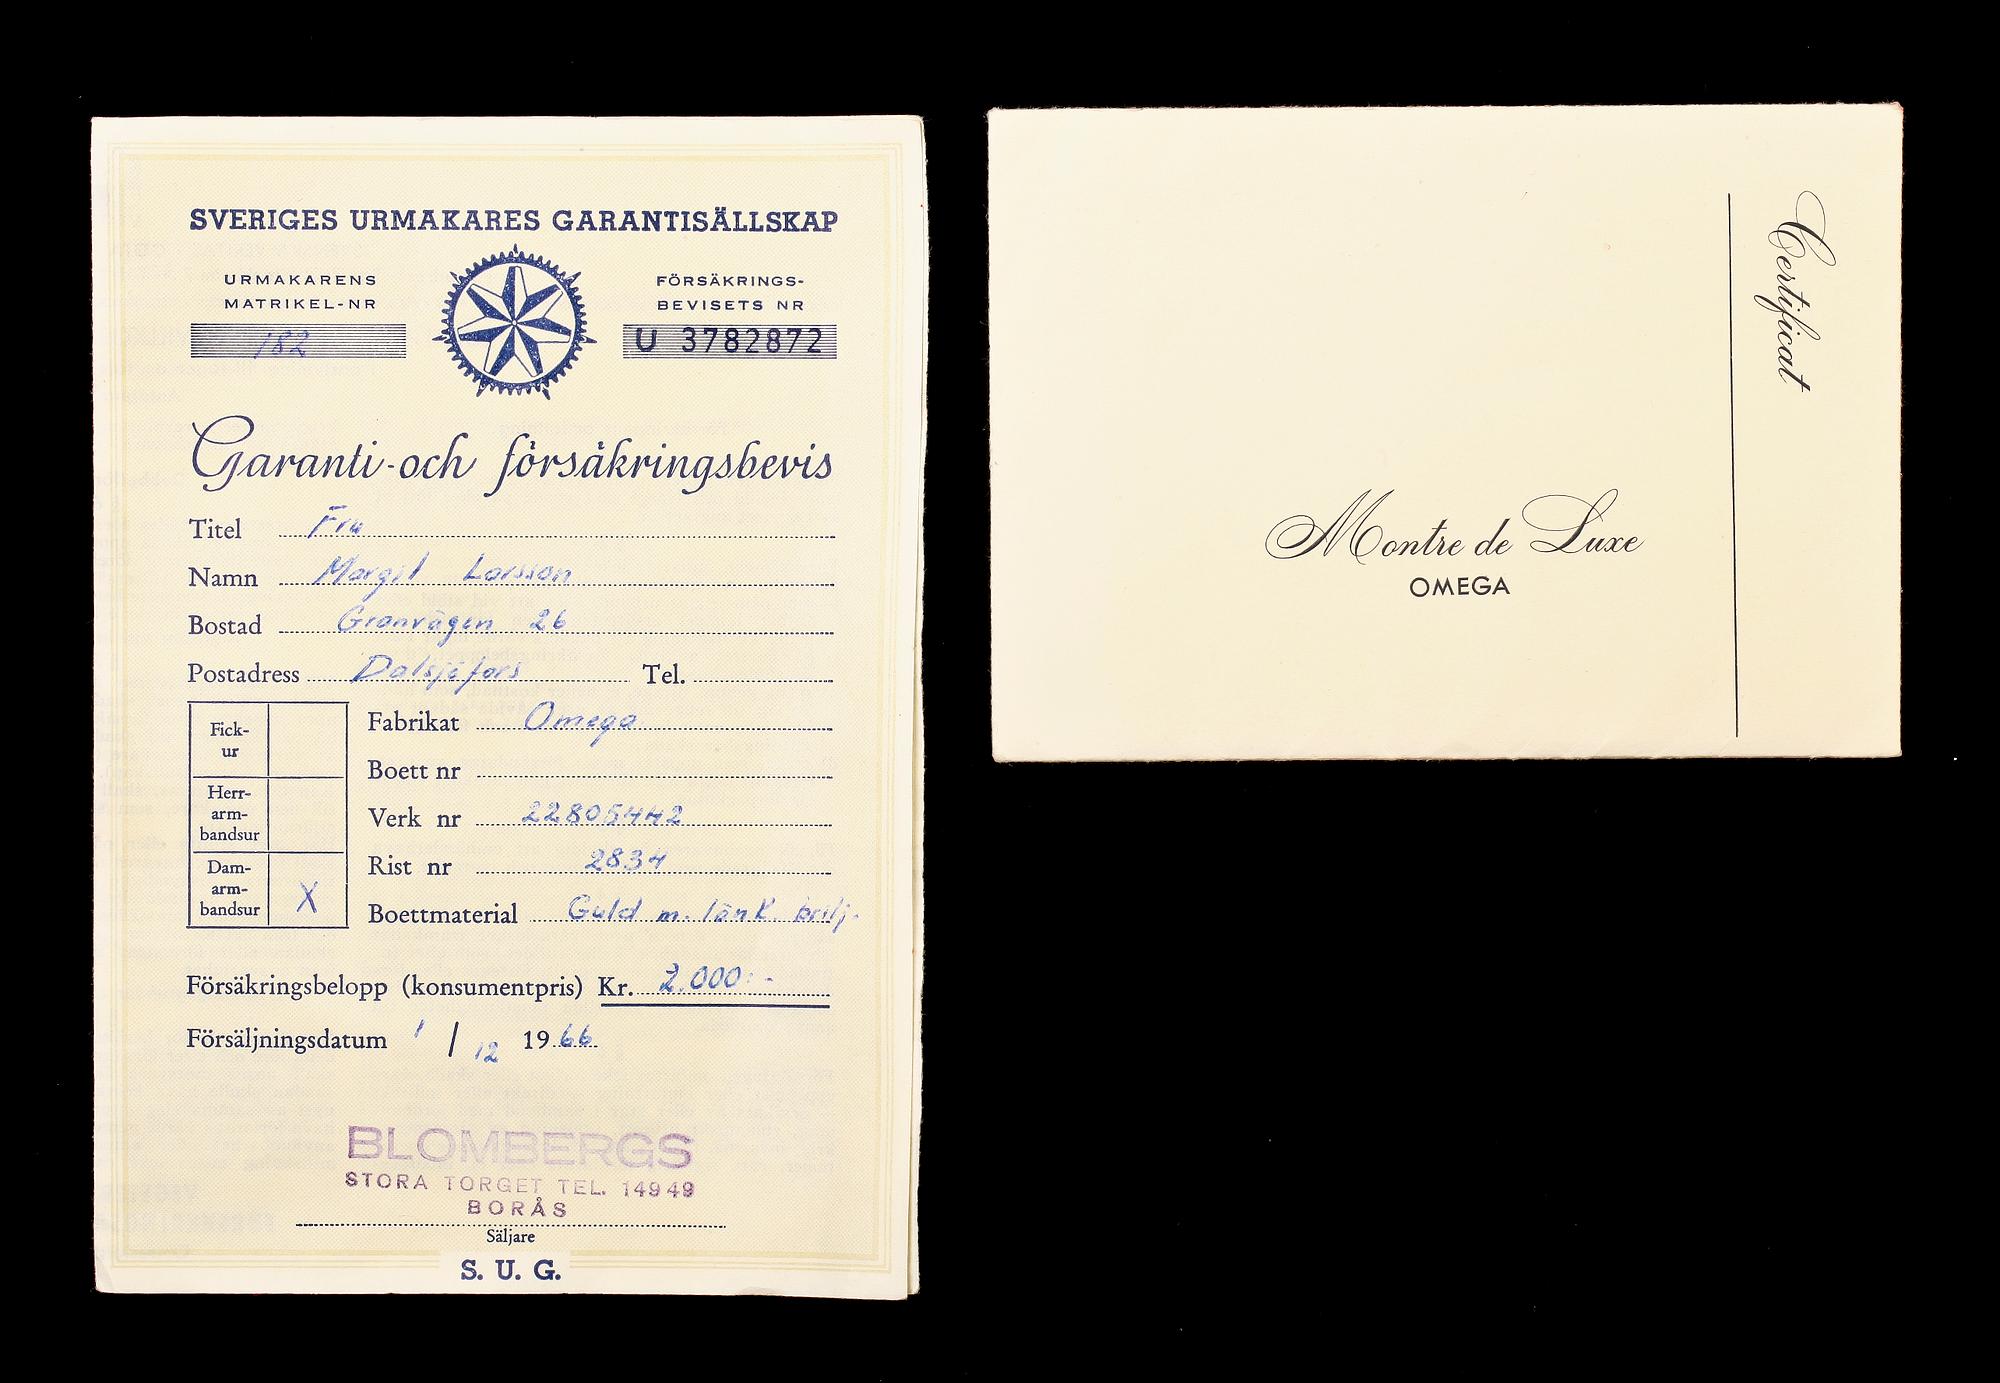 SVERIGES URMAKARES GARANTISÄLLSKAP
URMAKARENS
MATRIKEL-NR
182
FÖRSÄKRINGS-
BEVISETS NR
U 3782872
Garanti- och försäkringsbevis
Titel Fru
Namn Margit Larsson
Bostad Granvägen 26
Postadress Dalsjöfors Tel.
Fick-
ur
Herr-
arm-
bandsur
Dam-
arm-
bandsur X
Fabrikat Omega
Boett nr
Verk nr 22805442
Rist nr 2834
Boettmaterial Guld m. länk. brilj.
Försäkringsbelopp (konsumentpris) Kr. 2.000:-
Försäljningsdatum 1/12 1966
BLOMBERGS
STORA TORGET TEL. 14949
BORÅS
Säljare
S. U. G.
Certificat
Montre de Luxe
OMEGA